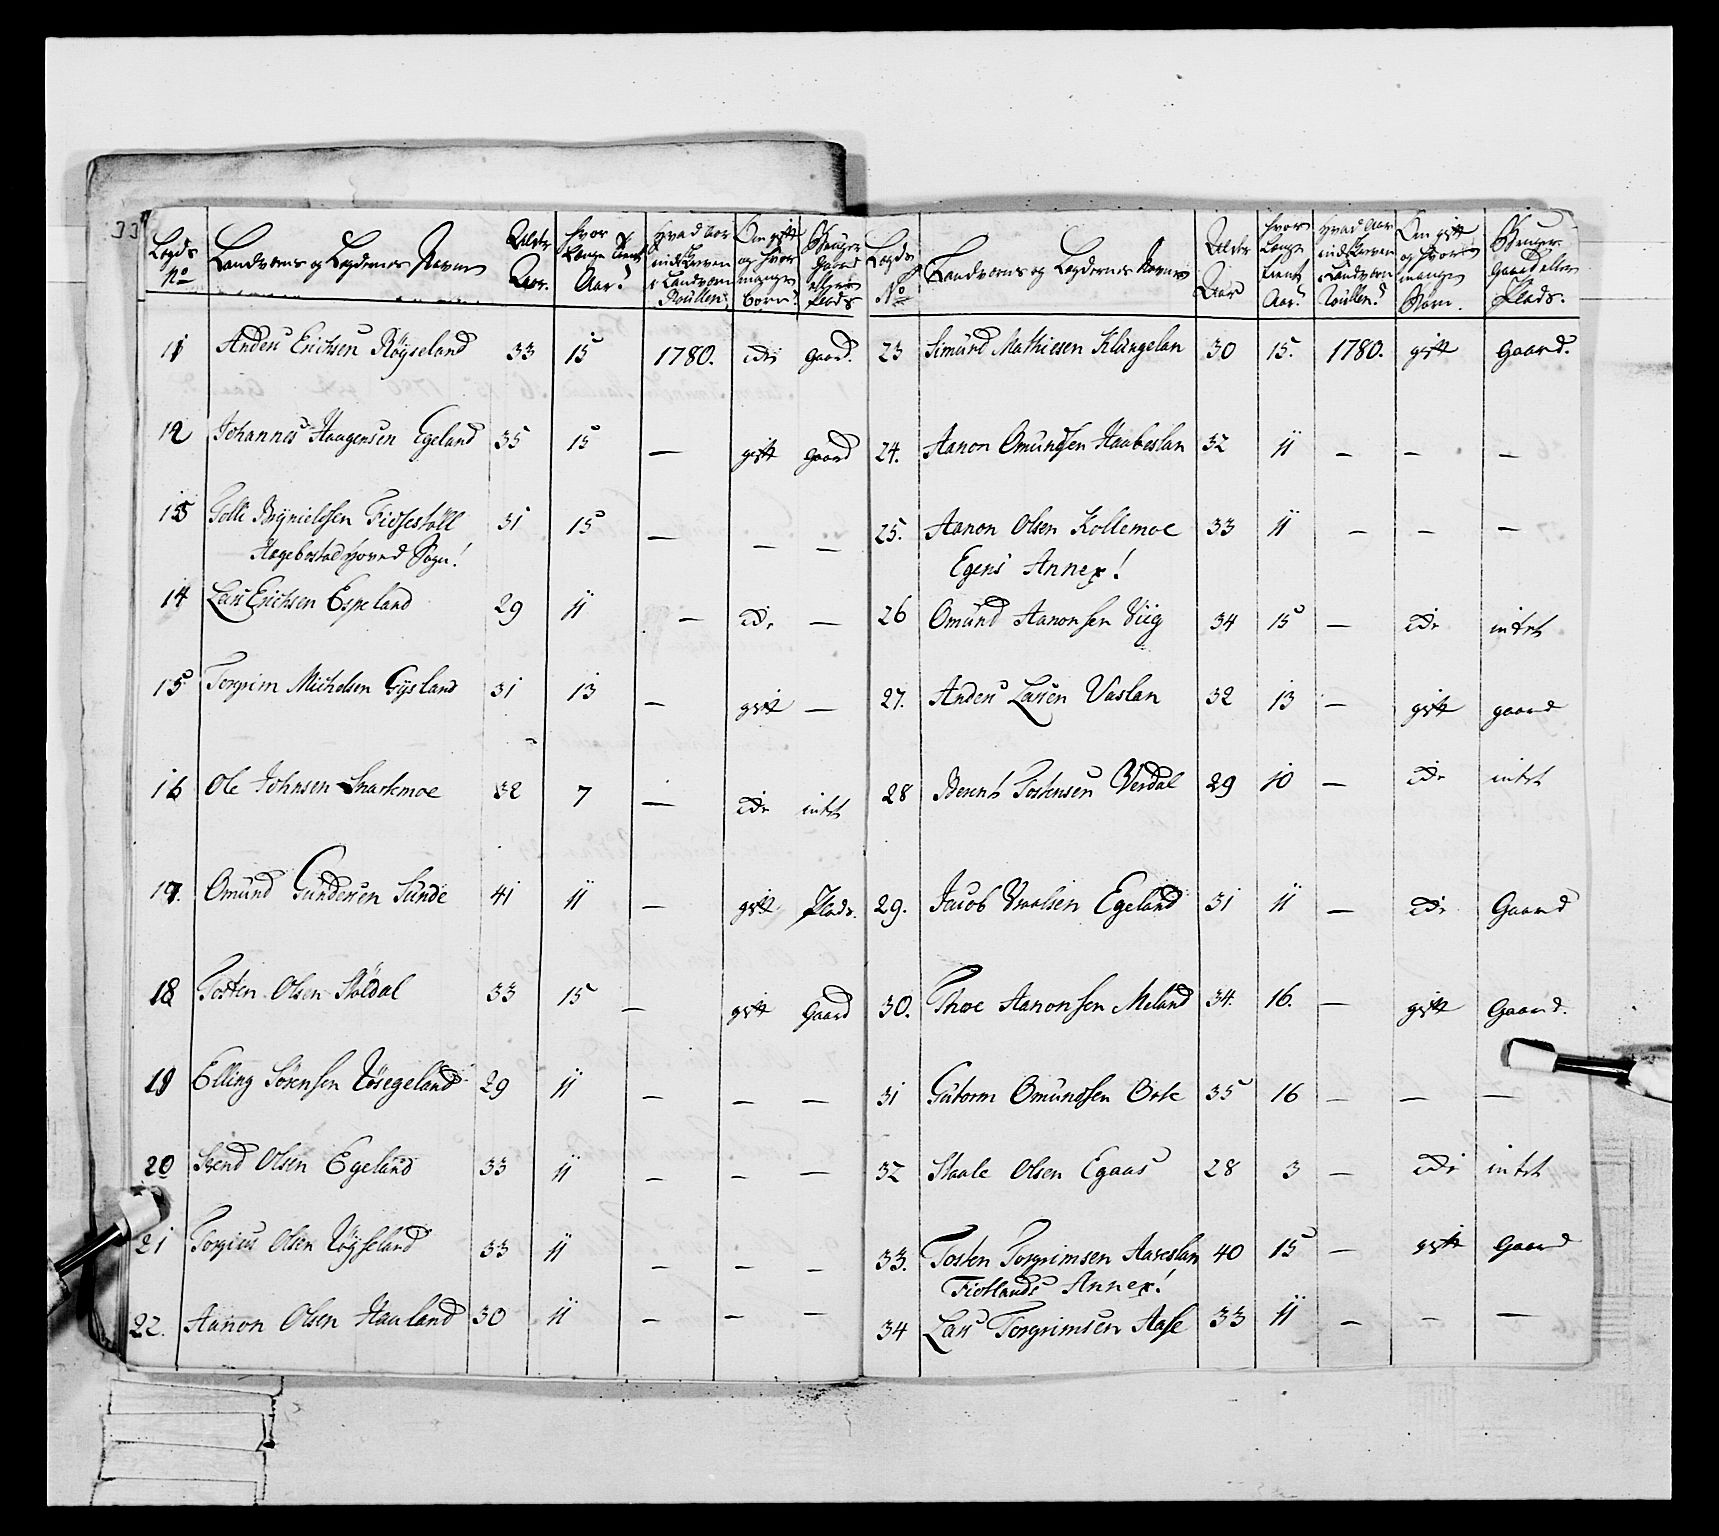 33
Legds No Landværns og Legdernes Navne Alder Aar. hvor Længe tient Aar? hvad Aar indskreven i Landværn Roullen. Om gift og hvor mange børn? Bruger Gaard eller Plads
11 Anders Erichsen Röyseland 33 15 1780. Idr gaard.
12 Johannes Haagensen Egeland 35 15 — gift gaard
13 Tolli Brynielsen Fidsestöll 31 15 — — —
Hægebostad Hoved Sogn!
14 Lars Erichsen Espeland 29 11 — Idr —
15 Torgrim Michelsen Gysland 31 13 — gift —
16 Ole Johnsen Snartemoe 32 7 — Idr intet
17. Omund Gundersen Sunde 41 11 — gift Plads.
18 Tosten Olsen Stöldal 33 15 — gift Gaard
19 Elling Sörensen Rösegeland 29 11 — — —
20 Svend Olsen Egeland 33 11 — — —
21 Torgius Olsen Röyseland 33 11 — — —
22. Aanon Olsen Haaland 30 11 — — —
Legds No Landværns og Legdernes Navne Alder Aar hvor Længe tient Aar? hvad Aar indskreven i Landværn Roullen? Om gift og hvor mange Börn. Bruger Gaard eller Plads.
23 Simund Mathiesen Klungelan 30 15. 1780. gift Gaard.
24. Aanon Omundsen Haabeslan 32 11 — — —
25. Aanon Olsen Kollemoe 33 11 — — —
Egens Annex!
26 Omund Aanonsen Viig 34 15 — Idr intet
27. Anders Larsen Vaslan 32 13 — gift gaard
28 Berent Tostensen Verdal 29 10 — Idr intet
29. Jacob Vraalsen Egeland 31 11 — Idr Gaard
30. Thore Aanonsen Meland 34 16. — gift Gaard.
31 Gutorm Omundsen Orte 35 16 — — —
32 Staale Olsen Egaas 28 3 — Idr intet
33. Tosten Torgrimsen Aareslan 40 15 — gift Gaard
Fiotlands Annex!
34 Lars Torgrimsen Aase 33 11 — — —